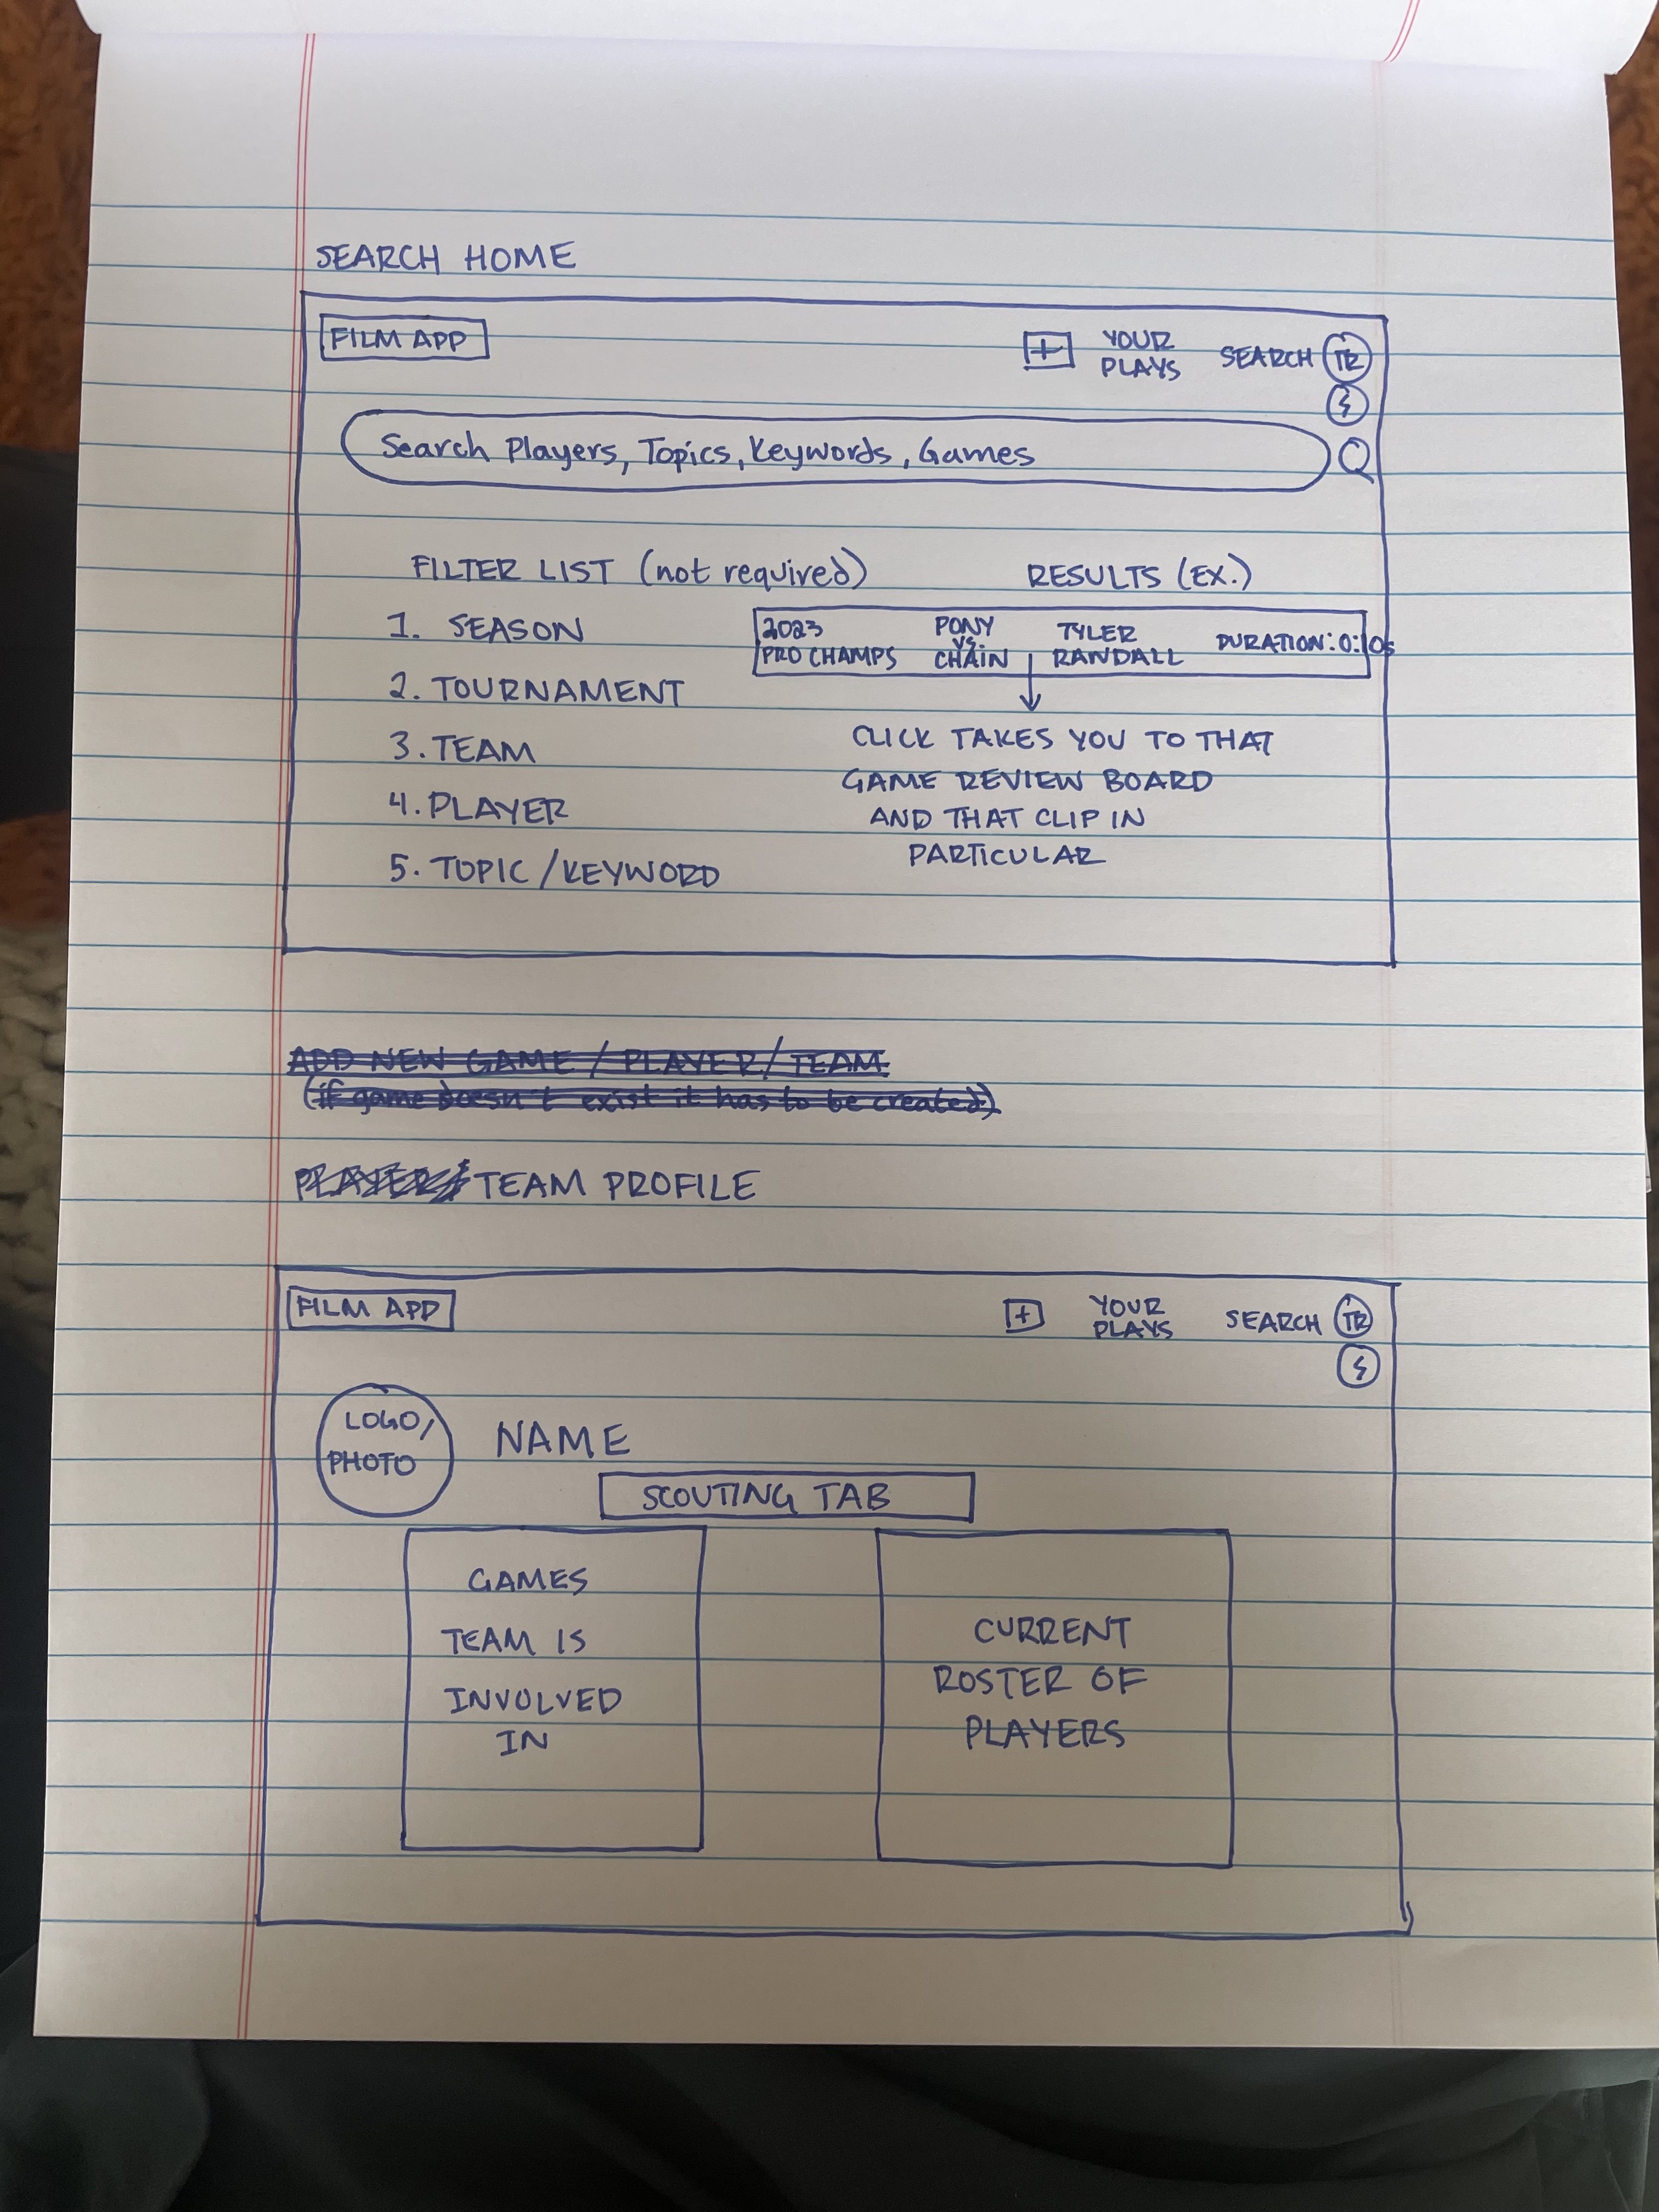 SEARCH HOME
FILM APP
+
YOUR
PLAYS
SEARCH
TR
Search Players, Topics, Keywords, Games
FILTER LIST (not required)
1. SEASON
2. TOURNAMENT
3. TEAM
4. PLAYER
5. TOPIC/KEYWORD
RESULTS (EX.)
2023
PRO CHAMPS
PONY
vs.
CHAIN
TYLER
RANDALL
DURATION: 0:10s
CLICK TAKES YOU TO THAT
GAME REVIEW BOARD
AND THAT CLIP IN
PARTICULAR
ADD NEW GAME / PLAYER / TEAM
(if game doesn't exist it has to be created)
PLAYER/ TEAM PROFILE
FILM APP
+
YOUR
PLAYS
SEARCH
TR
LOGO/
PHOTO
NAME
SCOUTING TAB
GAMES
TEAM IS
INVOLVED
IN
CURRENT
ROSTER OF
PLAYERS